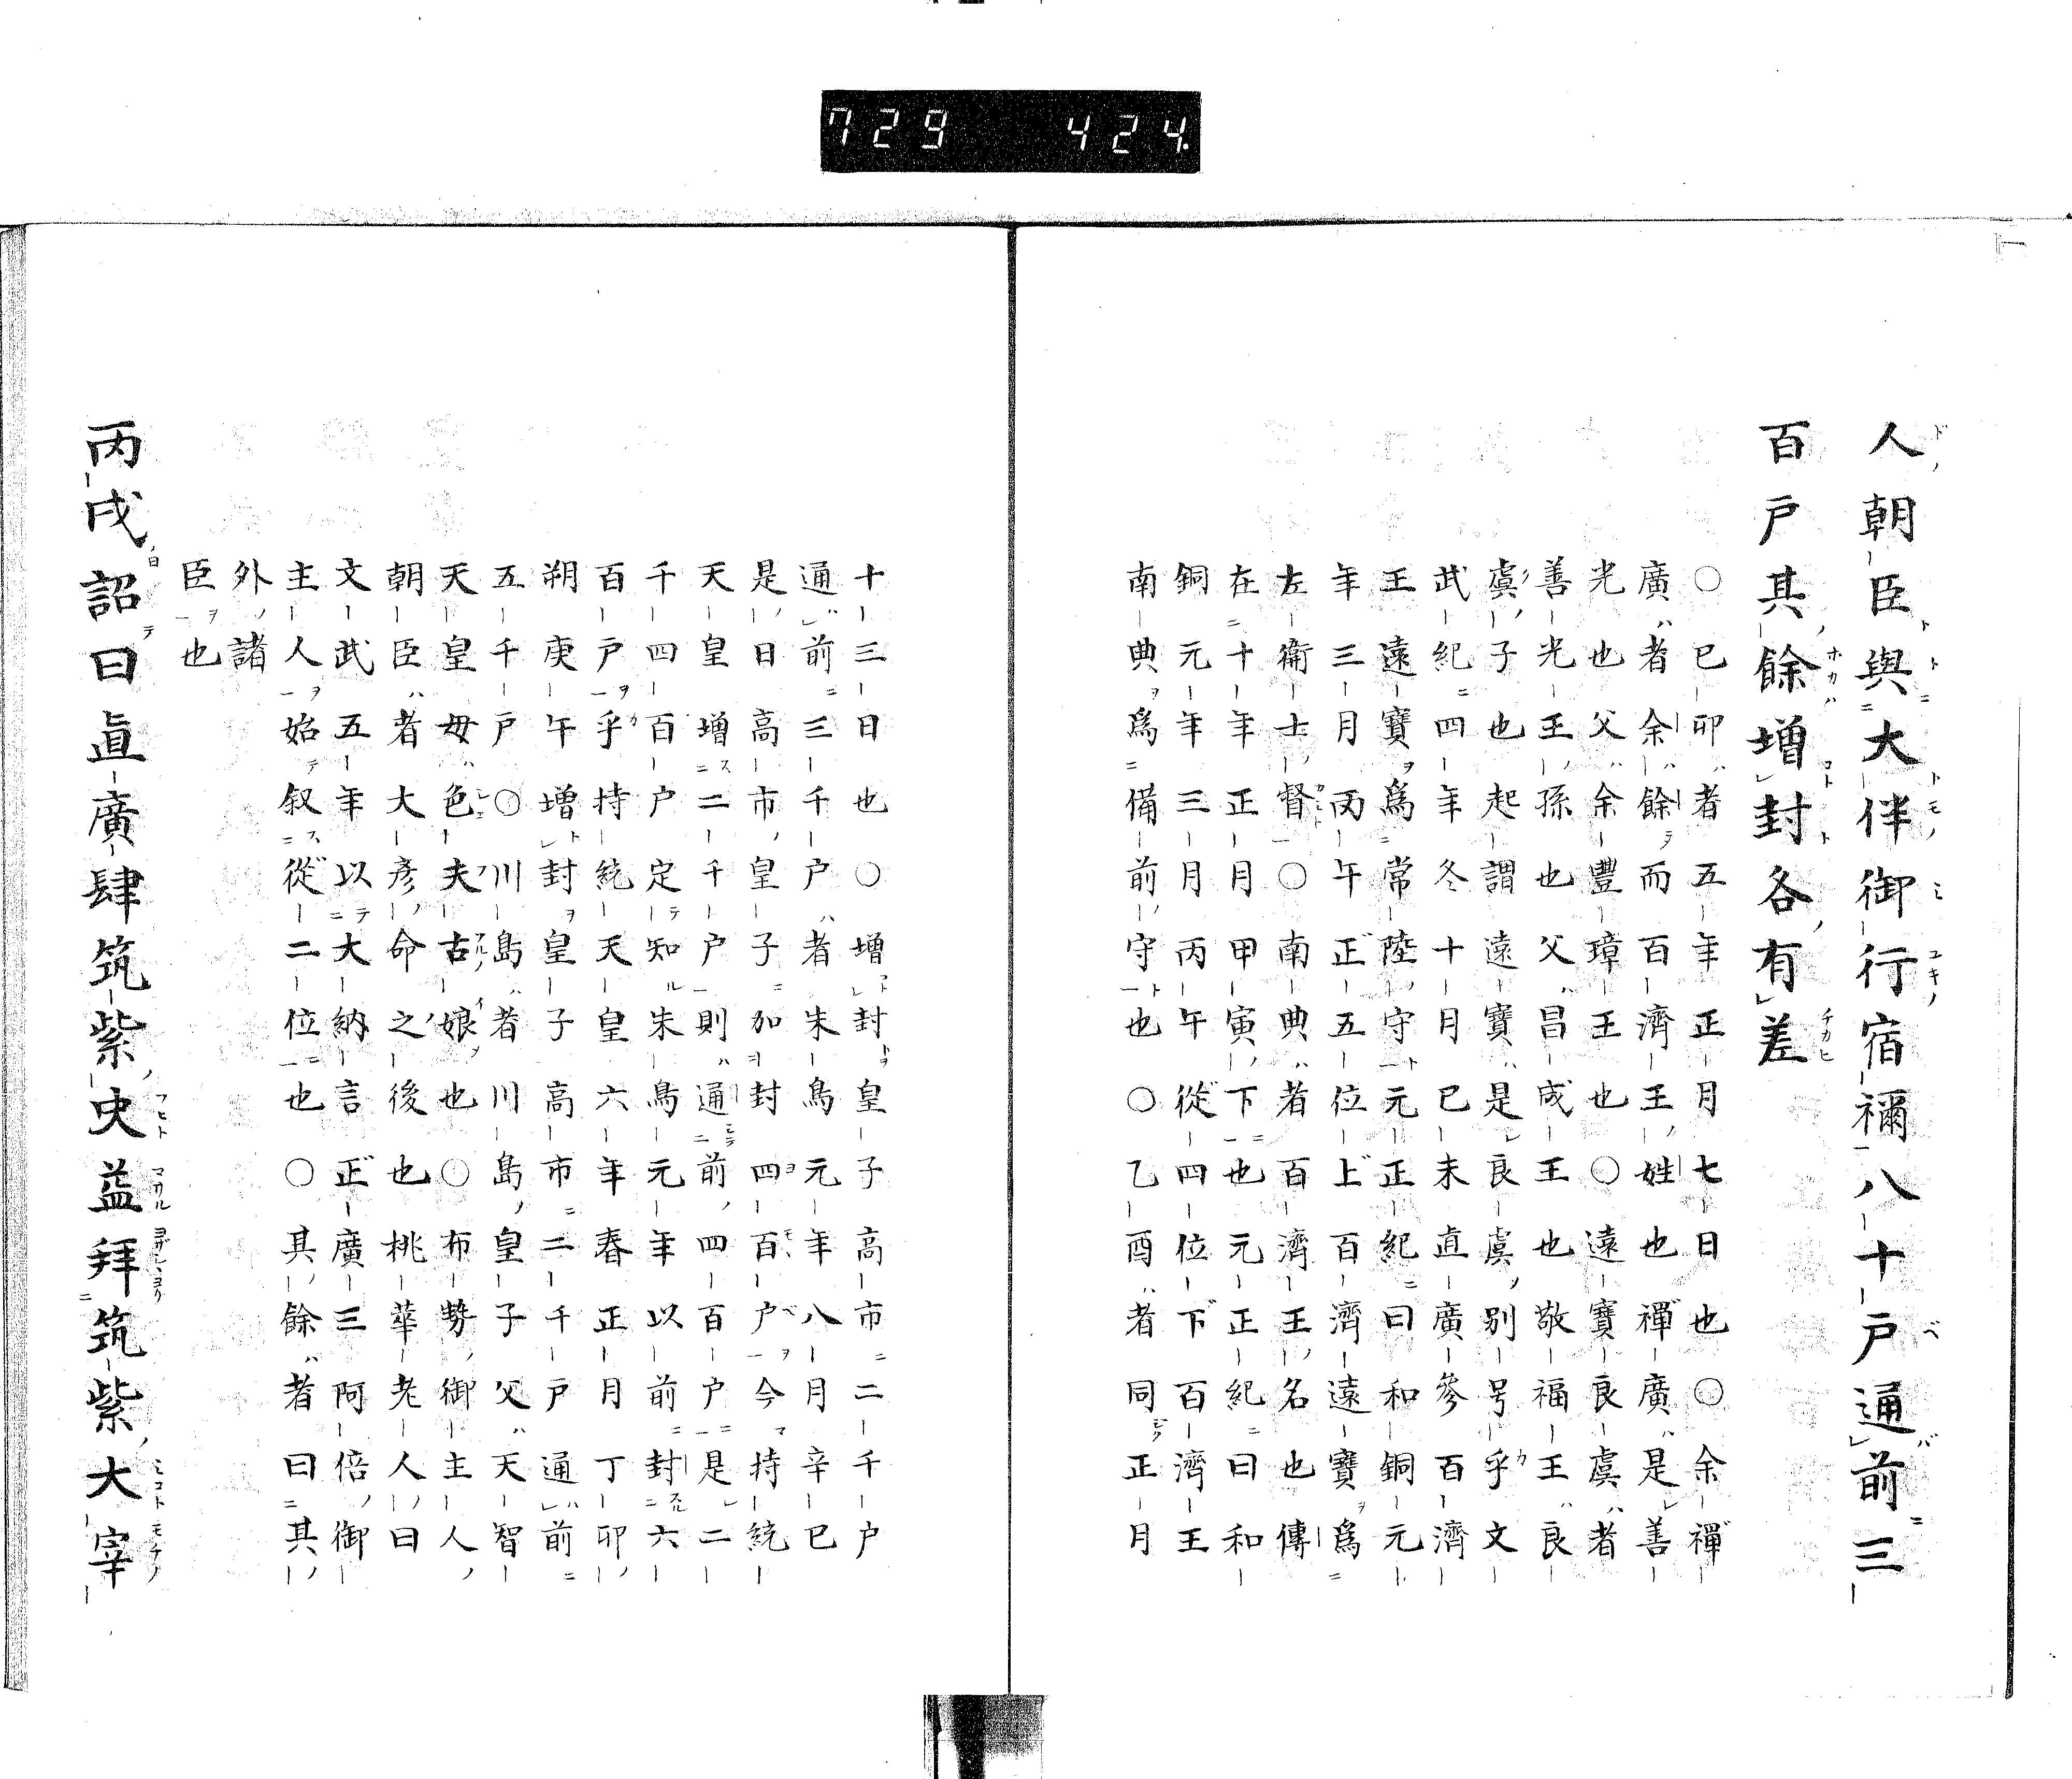 729 424
人朝臣與大伴御行宿禰八十戸通前三
百戸其餘増封各有差
○巳卯者五年正月七日也○余禪
廣者余餘而百濟王姓也禪廣是善
光也父余豐璋王也○遠寶良虞者
善光王孫也父昌成王也敬福王良
虞子也起謂遠寶是良虞別号乎文
武紀四年冬十月巳未直廣參百濟
王遠寶爲常陸守元正紀曰和銅元
年三月丙午正五位上百濟遠寶爲
左衛士督○南典者百濟王名也傳
在十年正月甲寅下也元正紀曰和
銅元年三月丙午從四位下百濟王
南典爲備前守也○乙酉者同正月
十三日也○増封皇子高市二千戸
通前三千戸者朱鳥元年八月辛巳
是日高市皇子加封四百戸今持統
天皇増二千戸則通前四百戸是二
千四百戸定知朱鳥元年以前封六
百戸乎持統天皇六年春正月丁卯
朔庚午増封皇子高市二千戸通前
五千戸○川島者川島皇子父天智
天皇母色夫古娘也○布勢御主人
朝臣者大彦命之後也桃華老人曰
文武五年以大納言正廣三阿倍御
主人始叙從二位也○其餘者曰其
外諸
臣也
丙戌詔曰直廣肆筑紫史益拜筑紫大宰